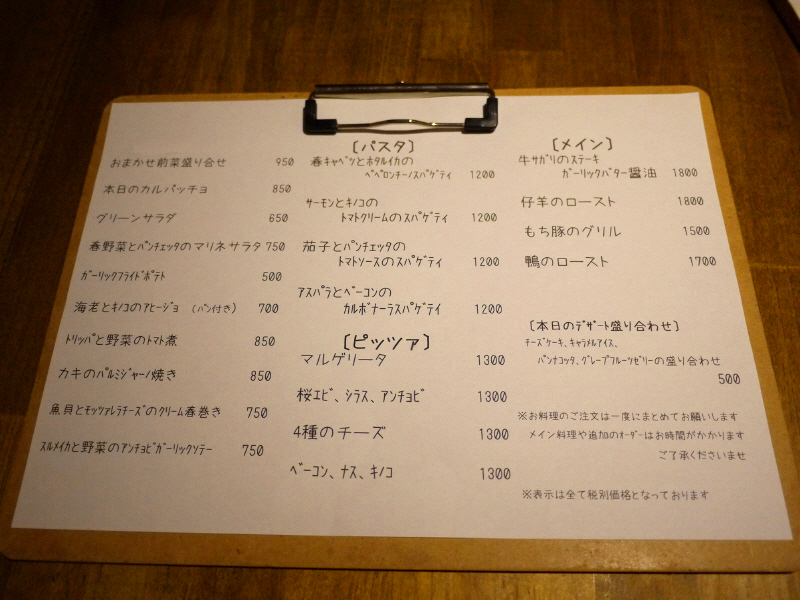 おまかせ前菜盛り合せ 950
本日のカルパッチョ 850
グリーンサラダ 650
春野菜とパンチェッタのマリネサラダ 750
ガーリックフライドポテト 500
海老とキノコのアヒージョ (パン付き) 700
トリッパと野菜のトマト煮 850
カキのパルミジャーノ焼き 850
魚貝とモッツァレラチーズのクリーム春巻き 750
スルメイカと野菜のアンチョビガーリックソテー 750
〔パスタ〕
春キャベツとホタルイカの
ペペロンチーノスパゲティ 1200
サーモンとキノコの
トマトクリームのスパゲティ 1200
茄子とパンチェッタの
トマトソースのスパゲティ 1200
アスパラとベーコンの
カルボナーラスパゲティ 1200
〔ピッツァ〕
マルゲリータ 1300
桜エビ、シラス、アンチョビ 1300
4種のチーズ 1300
ベーコン、ナス、キノコ 1300
〔メイン〕
牛サガリのステーキ
ガーリックバター醤油 1800
仔羊のロースト 1800
もち豚のグリル 1500
鴨のロースト 1700
〔本日のデザート盛り合わせ〕
チーズケーキ、キャラメルアイス、
パンナコッタ、グレープフルーツゼリーの盛り合わせ
500
※お料理のご注文は一度にまとめてお願いします
メイン料理や追加のオーダーはお時間がかかります
ご了承くださいませ
※表示は全て税別価格となっております